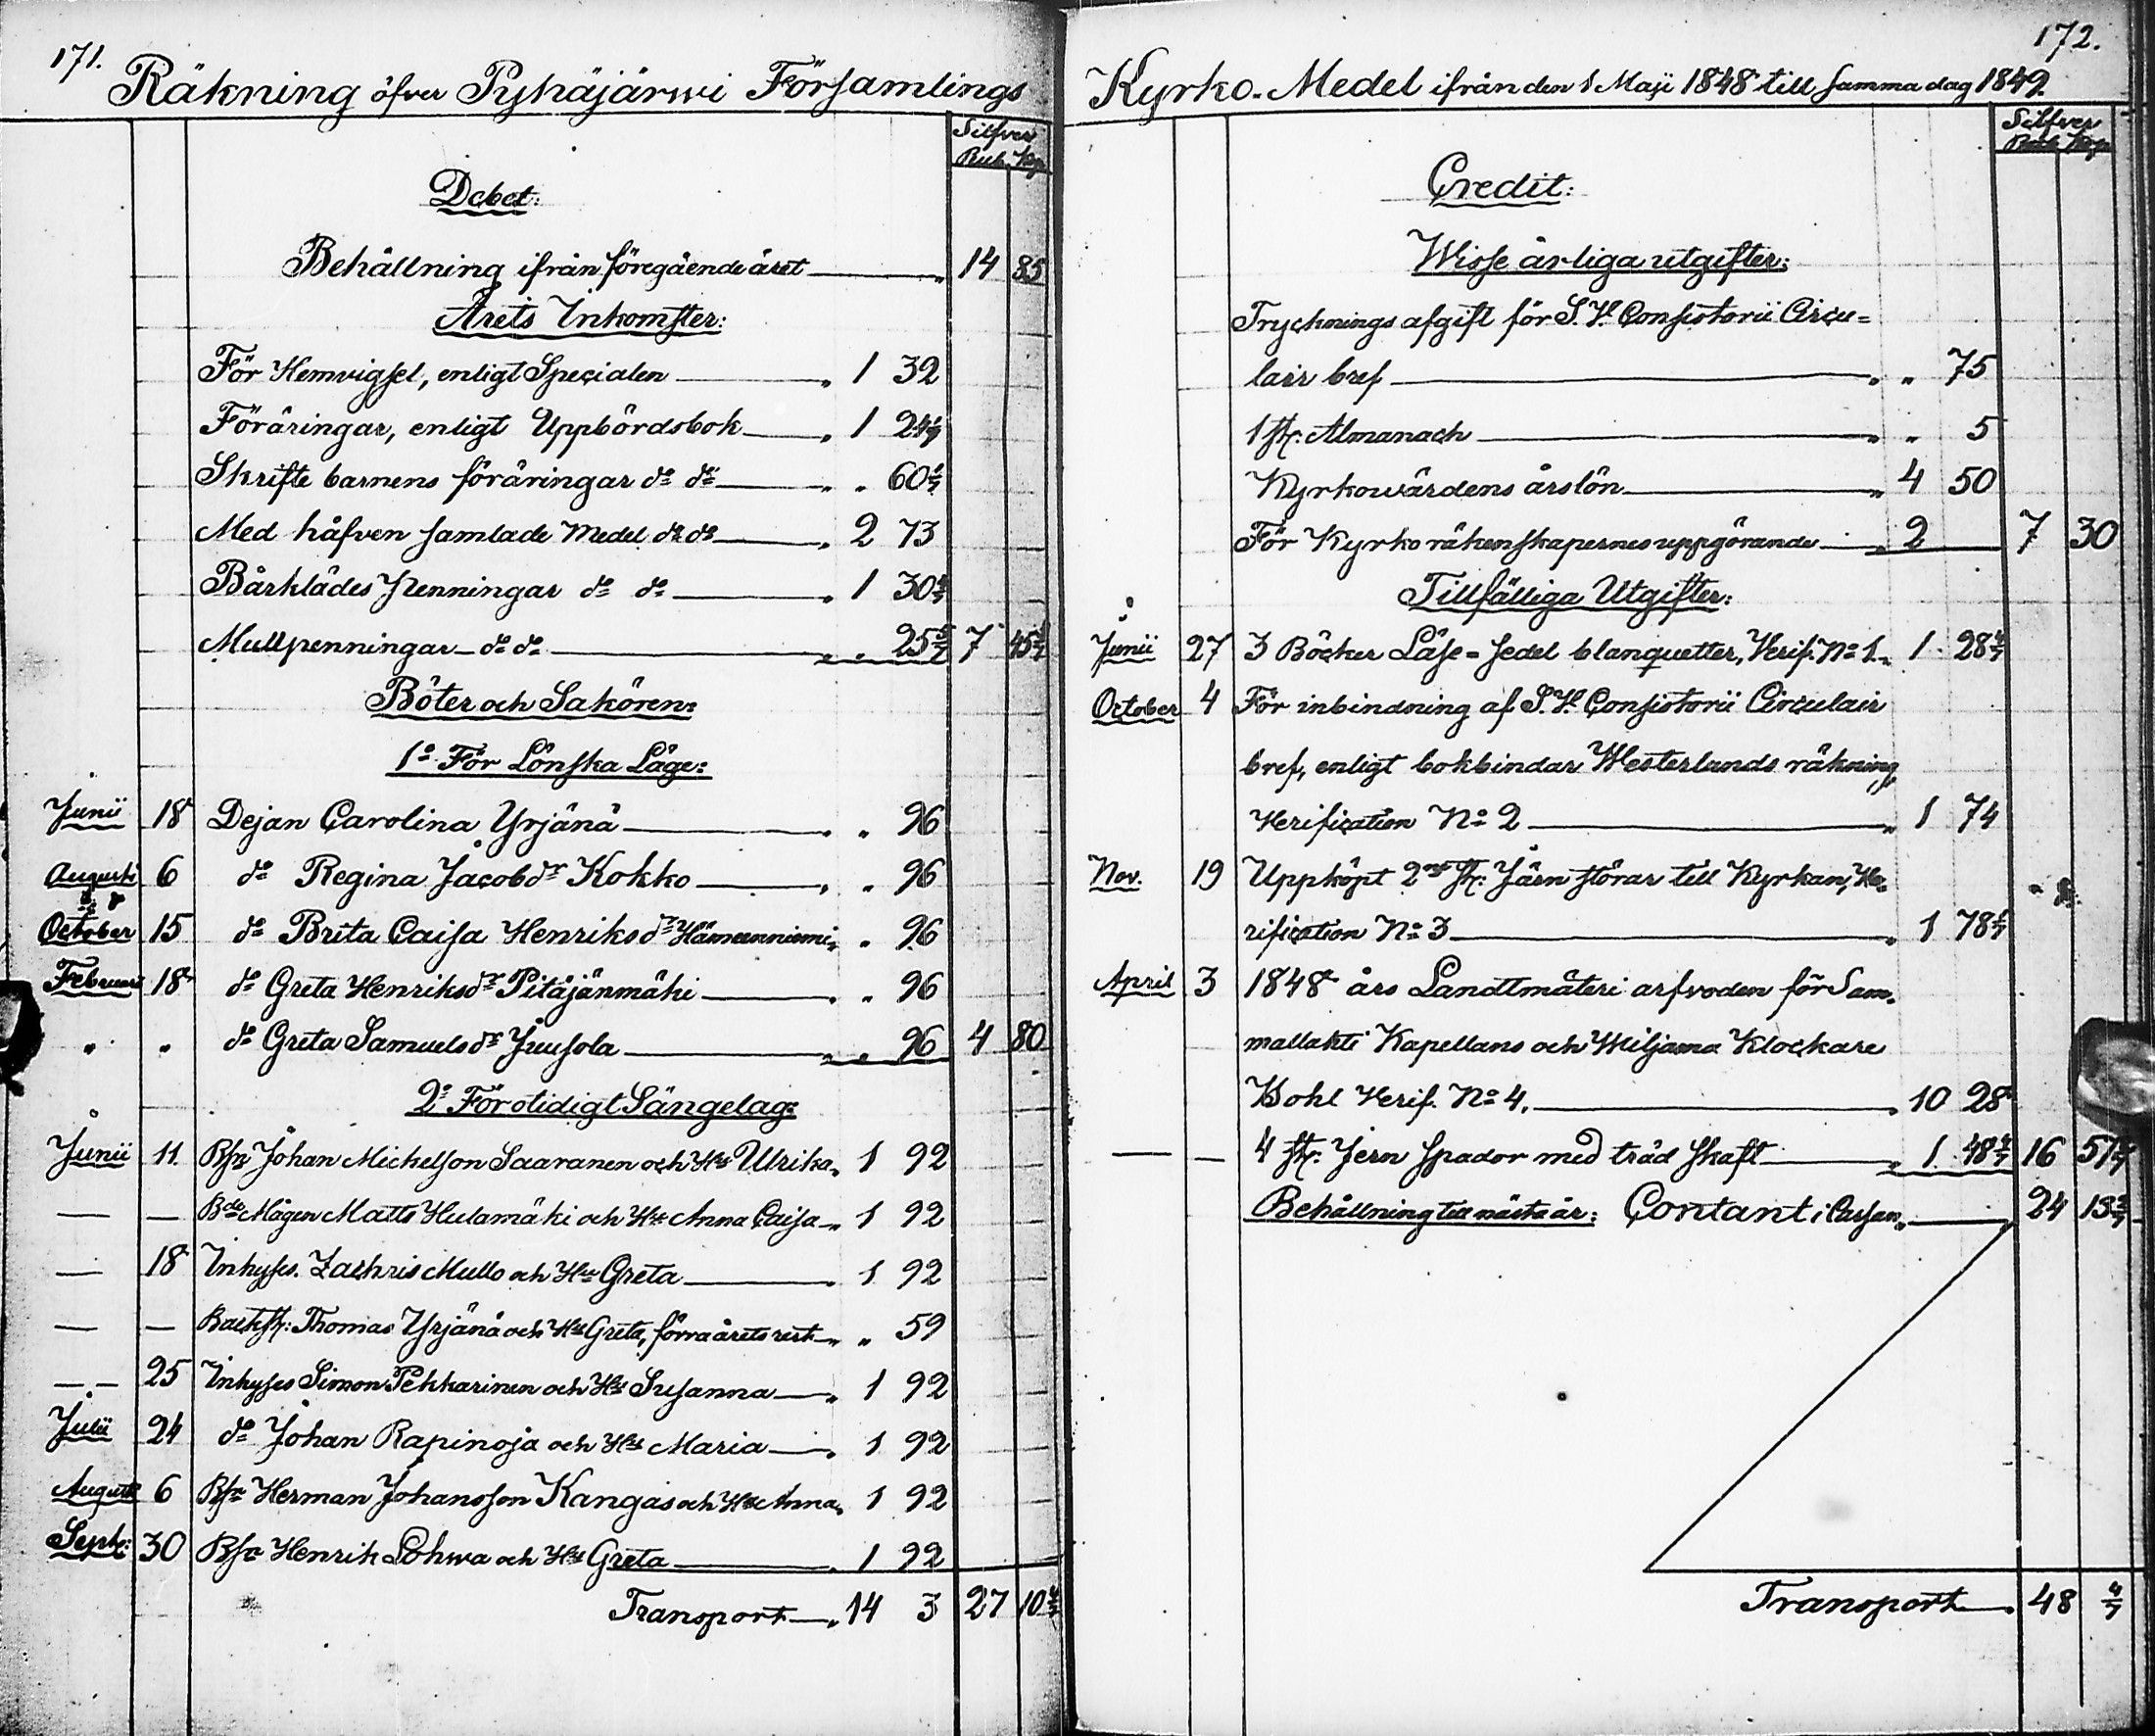 171.
Räkning öfver Pyhäjärwi Församlings
Silfver
Rub. Kop.
Debet:
Behållning ifrån föregående året „ 14 85
Årets Inkomster:
För Hemvigsel, enligt Specialen „ 1 32
Föräringar, enligt Uppbördsbok „ 1 24 4/7
Skrifte barnens föräringar do do „ „ 60
Med håfven samlade Medel do do „ 2 73
Bårklädes Penningar do do „ 1 30
Mullpenningar do do „ „ 25 5/7 7 45
Böter och Sakören:
1o För Lönska Läge:
Junii 18 Dejan Carolina Yrjänä „ „ 96
Augusti 6 do Regina Jacobdr Kokko „ „ 96
October 15 do Brita Caisa Henriksdr „ „ 96
Februari 18 do Greta Henriksdr Pitäjänmäki „ „ 96
„ „ do Greta Samuelsdr Juusola „ „ 96 4 80
2o För otidigt Sängelag:
Junii 11. Bsn Johan Mickelson Saaranen och Hu Ulrika „ 1 92
— — Bde Mågen Matts Hulamäki och Hu Anna Caisa „ 1 92
— 18 Inhyses. Zachris Mullo och Hu Greta „ 1 92
— — Backst: Thomas Yrjänä och Hu Greta, förra årets rest „ „ 59
— — 25 Inhyses Simon Pekkarinen och Hu Susanna „ 1 92
Julii 24 do Johan Rapinoja och Hu Maria „ 1 92
Augusti 6 Bsn Herman Johansson Kangas och Hu Anna „ 1 92
Sept: 30 Bsn Henrik Lohwa och Hu Greta „ 1 92
Transport „ 14 3 27 10 4/7
172.
Kyrko-Medel ifrån den 1 Maji 1848 till samma dag 1849.
Silfver
Rub. Kop.
Credit:
Wisse årliga utgifter:
Trycknings afgift för S. V. Consistorii Circu=
lair bref „ „ 75
1 st: Almanach „ „ 5
Kyrkowärdens årslön „ 4 50
För Kyrko räkenskapernes uppgörande „ 2 7 30
Tillfälliga Utgifter:
Junii 27 3 Böcker Läse=sedel blanquetter, Verif. No 1. „ 1 28 4/7
October 4 För inbindning af S. V. Consistorii Circulair
bref, enligt bokbindar Westerlunds räkning,
Verification No 2 „ 1 74
Nov. 19 Uppköpt 2ne st: Järn störar till Kyrkan, Ve-
rification No 3 „ 1 78
April 3 1848 års Landtmäteri arfvoden för Sam-
mallahti Kapellans och Wiljama Klockare
Bohl Verif. No 4. „ 10 28
— — 4 st: Jern spador med träd skaft „ 1 48 16 57
Behållning till nästa år: Contant i Cassan „ 24 13
Transport „ 48 4/7